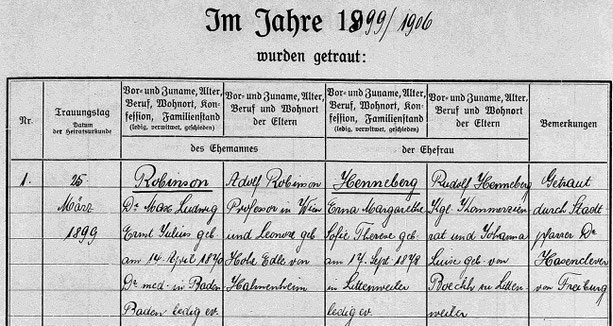 Im Jahre 1899/1906
wurden getraut:
Nr.
Trauungstag
Datum
der Heiratsurkunde
Vor- und Zuname, Alter,
Beruf, Wohnort, Kon-
fession, Familienstand
(ledig, verwitwet, geschieden)
Vor- und Zuname, Alter,
Beruf und Wohnort
der Eltern
des Ehemannes
Vor- und Zuname, Alter,
Beruf, Wohnort, Kon-
fession, Familienstand
(ledig, verwitwet, geschieden)
Vor- und Zuname, Alter,
Beruf und Wohnort
der Eltern
der Ehefrau
Bemerkungen
1.
25
März
1899
Robinson
Dr. Max Ludwig
Ernst Julius geb
am 14 April 1870
Dr med in Baden
Baden ledig ev.
Adolf Robinson
Professor in Wien
und Leonore geb
Hohe Edle von
Halmenheim
Henneberg
Erna Margarethe
Sofie Therese geb
am 17. Sept 1878
in Littenweiler
ledig ev.
Rudolf Henneberg
Kgl Kommerzien
rat und Johanna
Luise geb. von
Boechh zu Litten-
weiler
Getraut
durch Stadt-
pfarrer Dr
Hasenclever
von Freiburg